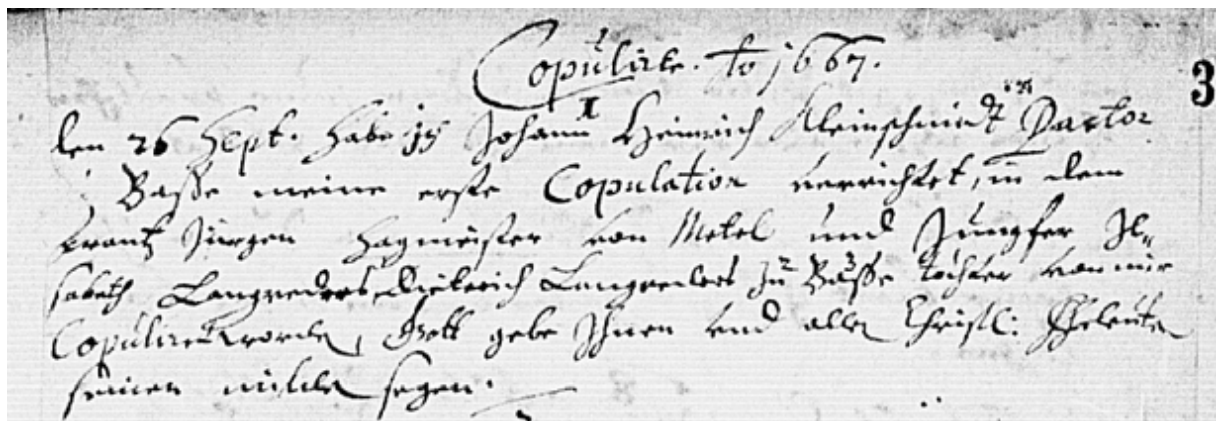 Copulirte. Ao 1667.
3
I
den 26 Sept. habe ich Johann Heinrich Kleinschmidt Pastor
Basse meine erste Copulation verrichtet, in dem
Frantz Jürgen Hagmeister von Metel und Jungfer Il=
sabeth Langreders, Dieterich Langreders zu Basse tochter von mir
Copuliret worden, Gott gebe Ihnen und allen Christl: Eheleuten
seinen milden segen.